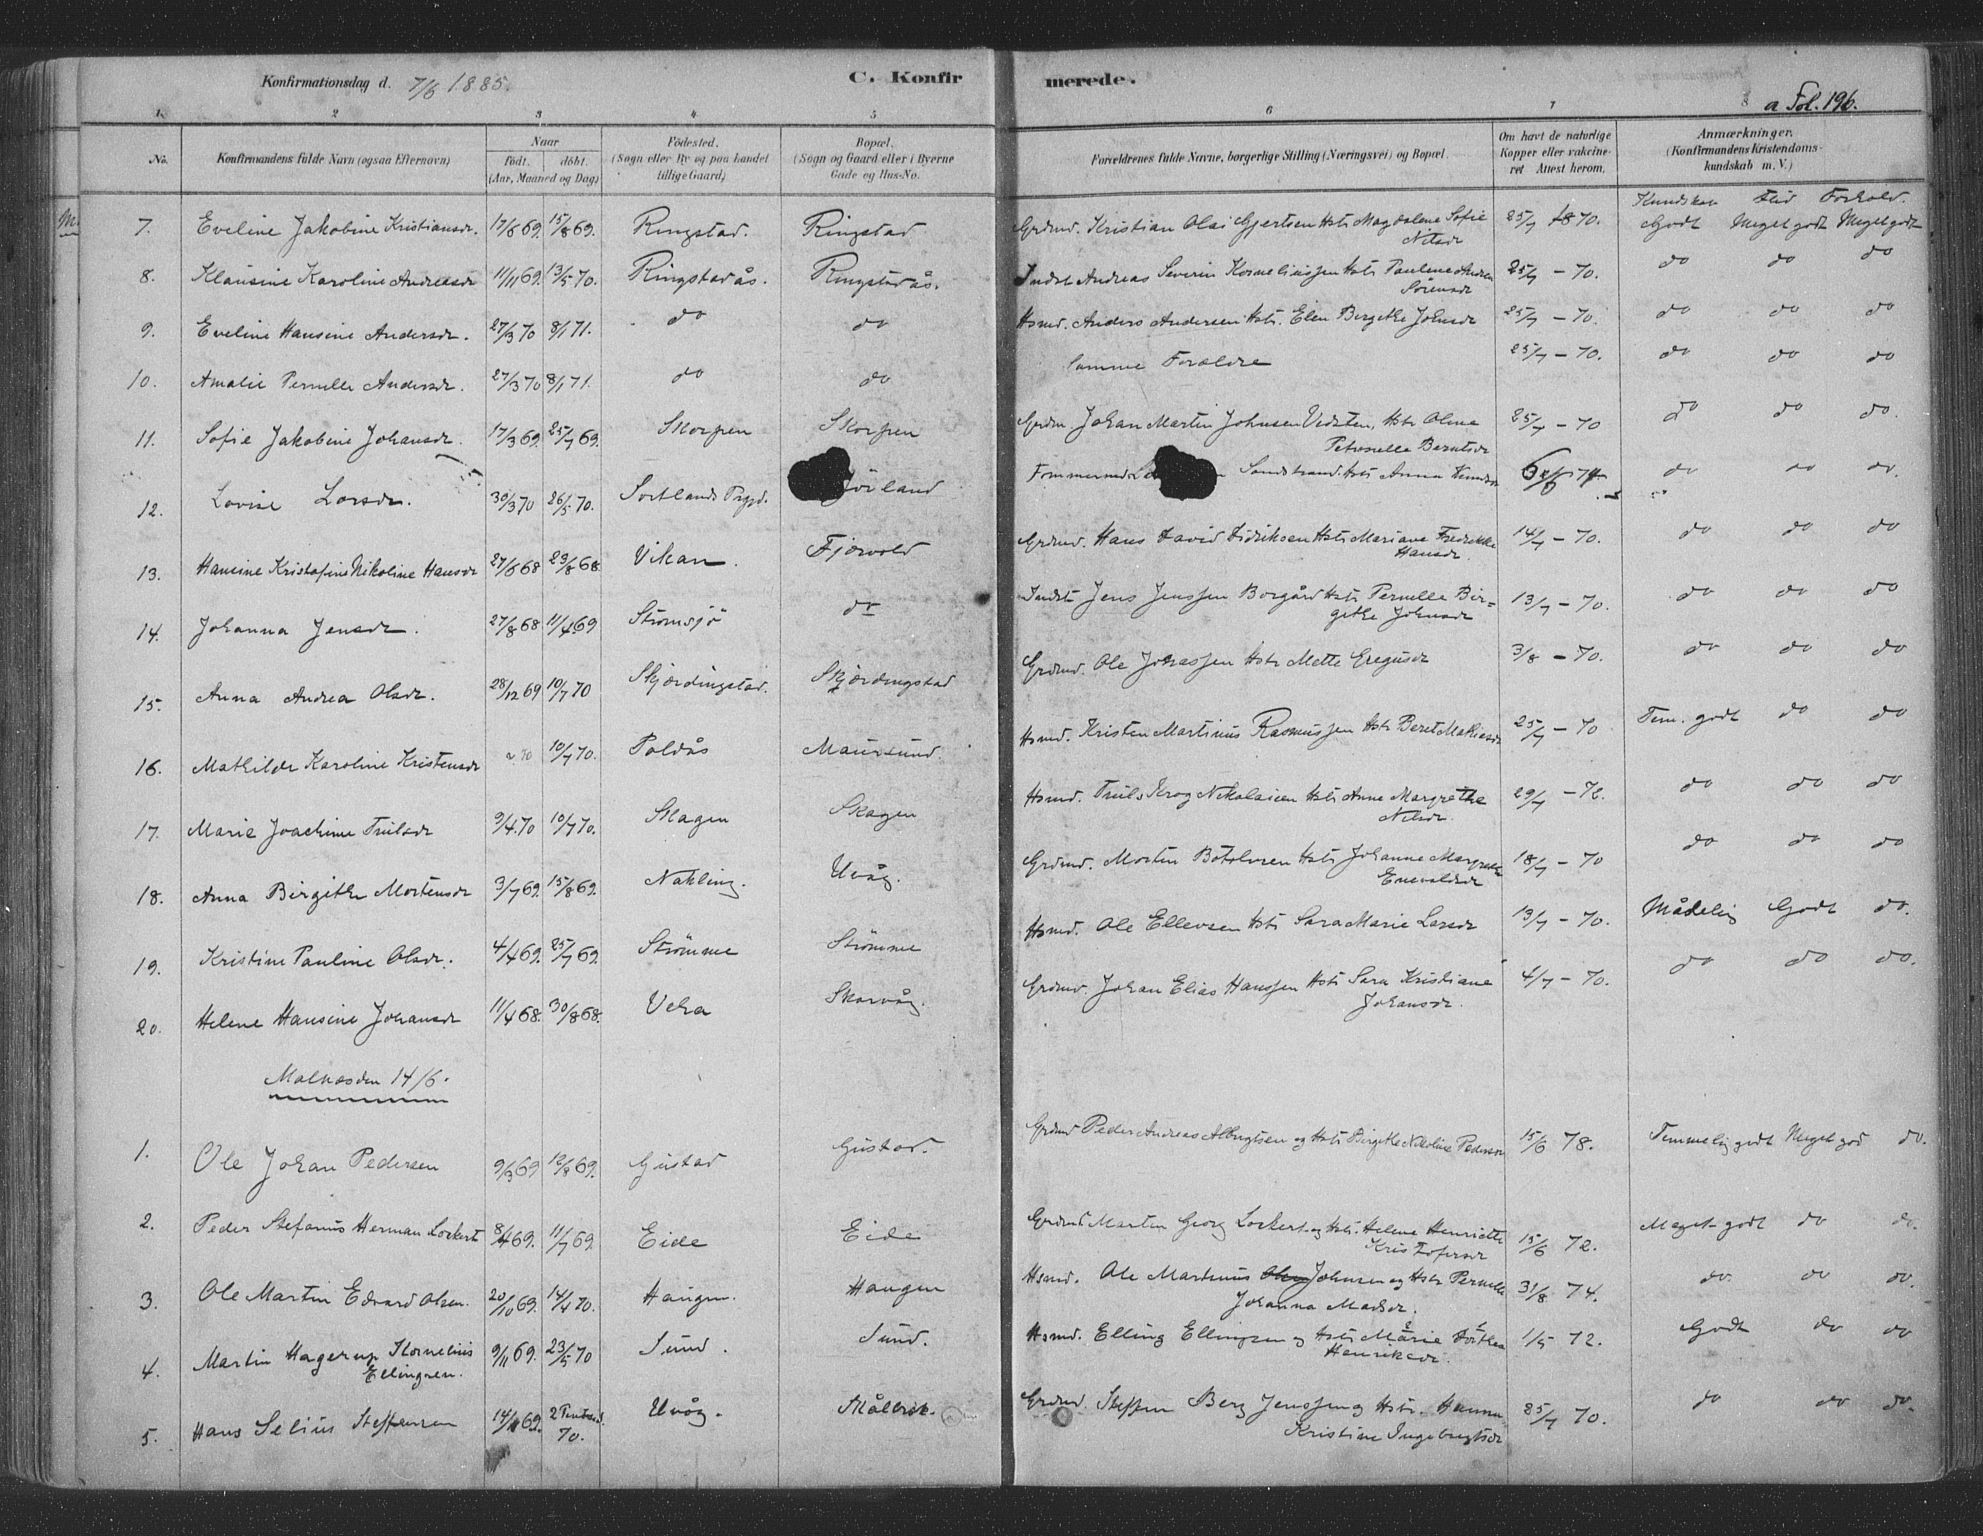 Konfirmationsdag d. 7/6 1885. C. Konfir merede. a Fol. 196.
1. 2 3 4 5 6 7 8
No. Konfirmandens fulde Navn (ogsaa Efternavn) Naar født. døbt. (Aar, Maaned og Dag) Fødested. (Sogn eller By og paa Landet tillige Gaard) Bopæl. (Sogn og Gaard eller i Byerne Gade og Hus-No. Forældrenes fulde Navne, borgerlige Stilling (Næringsvei) og Bopæl. Om havt de naturlige Kopper eller vakcineret Attest herom. Anmærkninger. (Konfirmandens Kristendomskundskab m. V.)
Kundskab Flid Forhold.
7. Eveline Jakobine Kristiansdr. 17/6 69. 15/8 69. Ringstad. Ringstad Grdmd. Kristian Olai Gjertsen Hstr Magdalene Sofie Nilsdr 25/7 1870. Godt Meget godt Meget godt
8. Klausine Karoline Andreasdr 11/11 69. 13/5 70. Ringstadås. Ringstadås. Indst Andreas Severin Kornelinssen Hstr Paulene Andrea Sörensdr 25/7 – 70. do do do
9. Eveline Hansine Andersdr. 27/3 70 8/1 71. do do Hsmd. Anders Andersen Hstr. Elen Bergitte Johnsdr 25/7 – 70. do do do
10. Amalie Pernille Andersdr. 27/3 70 8/1 71. do do Samme Forældre 25/7 – 70. do do do
11. Sofie Jakobine Johansdr. 17/3 69. 25/7 69. Skorpen Skorpen Grdm Johan Martin Johnsen Vedsten, Hstr Oline Petronelle Berntsdr 25/7 – 70 do do do.
12. Lovise Larsdr. 30/3 70 26/5 70. Sortlands Prgd. Sandstrand. Hstr Anna do do do.
13. Hansine Kristofine Nikoline Hansdr 27/6 68 23/8 68. Vikan. Fjærvold Grdmd. Hans David Didriksen Hstr Mariane Fredrikke Hansdr. 14/7 – 70. do do do
14. Johanna Jensdr. 27/8 68 11/4 69 Strömsjö do Indst Jens Jenssen Borgård Hstr Pernelle Birgitte Johnsdr 13/7 – 70. do do do
15. Anna Andrea Olsdr. 28/12 69 10/7 70 Skjærdingstad. Skjærdingstad Grdmd. Ole Johnssen Hstr Mette Gregusdr 3/8 – 70. do do do
16. Mathilde Karoline Kristensdr 10/7 70. Poldås Maursund. Hsmd. Kristen Martinus Rasmussen Hstr Beret Mathiasdr 25/7 – 70 Tem. godt do do
17. Marie Joachime Trulsdr 9/4 70 10/7 70. Skagen Skagen Hsmd. Truls Krog Nikolaisen Hstr Anne Margrethe Nilsdr. 29/7 – 72. do do do
18. Anna Birgitte Mortensdr 3/7 69. 15/8 69. Nakling. Uvåg. Grdmd. Morten Botolvsen Hstr Johanne Margrethe Enevoldsdr 18/7 – 70 do do do
19. Kristine Pauline Olsdr. 4/4 69. 25/7 69. Strömme Strömme Hsmd. Ole Ellevsen Hstr Sara Marie Larsdr 13/7 – 70. Mådelig Godt do.
20. Helene Hansine Johansdr 11/4 68. 30/8 68. Vena Skarvåg. Grdmd. Johan Elias Hanssen Hstr Sara Kristiane Johansdr. 4/7 – 70. do do do.
Malnæs den 14/6.
1. Ole Johan Pedersen 9/3 69 12/9 69. Gustad Gustad. Grdmd Peder Andreas Albrigtsen og Hstr Birgitte Nikoline Pedersdr 15/6 78. Temmelig godt Meget god do.
2. Peder Stefanus Herman Lockert 8/4 69. 11/7 69. Eide Eide Grdmd Martin Georg Lockert og Hstr. Helene Henriette Kristofersdr 15/6 72. Meget godt do do.
3. Ole Martin Edvard Olsen. 20/10 69. 14/4 70. Haugen. Haugen Hsmd. Ole Martinus Johnsen og Hstr Pernille Johanna Madsdr. 31/8 74. do. do do.
4. Martin Hagerup Kornelius Ellingsen. 9/11 69. 23/5 70 Sund. Sund. Hsmd. Elling Ellingsen og Hstr Marie Dortea Henriksdr. 1/5 72. Godt do do
5. Hans Selius Steffensen 69. 2 70. Uvåg. Målvik. Grdmd. Steffen Berg Jenssen og Hstr. Hanna Kristine Ingebrigtsdr 25/7 70. do do do.